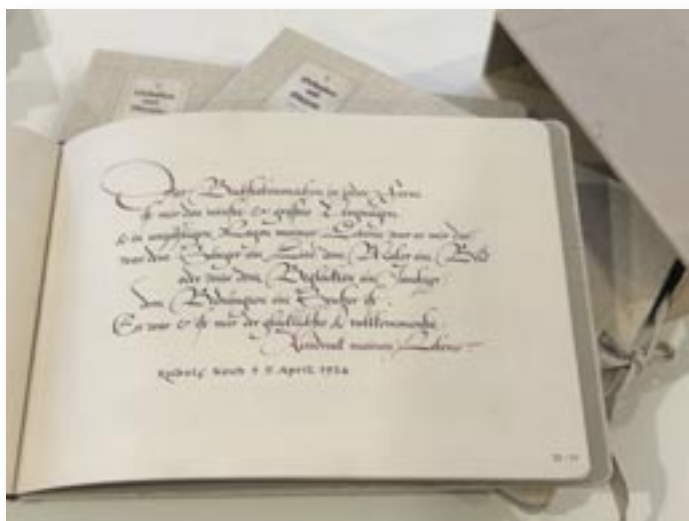 Das Buchstabenmachen in jeder Form
ist mir das reinste & größte Vergnügen,
& in unzähligen Lagen meines Lebens war es mir das,
was dem Sänger ein Lied dem Maler ein Bild
oder was dem Beglückten ein Jauchzer
dem Bedrängten ein Seufzer ist.
Es war & ist mir der glücklichste & vollkommenste
Ausdruck meines Lebens.
Rudolf Koch † 9. April 1934